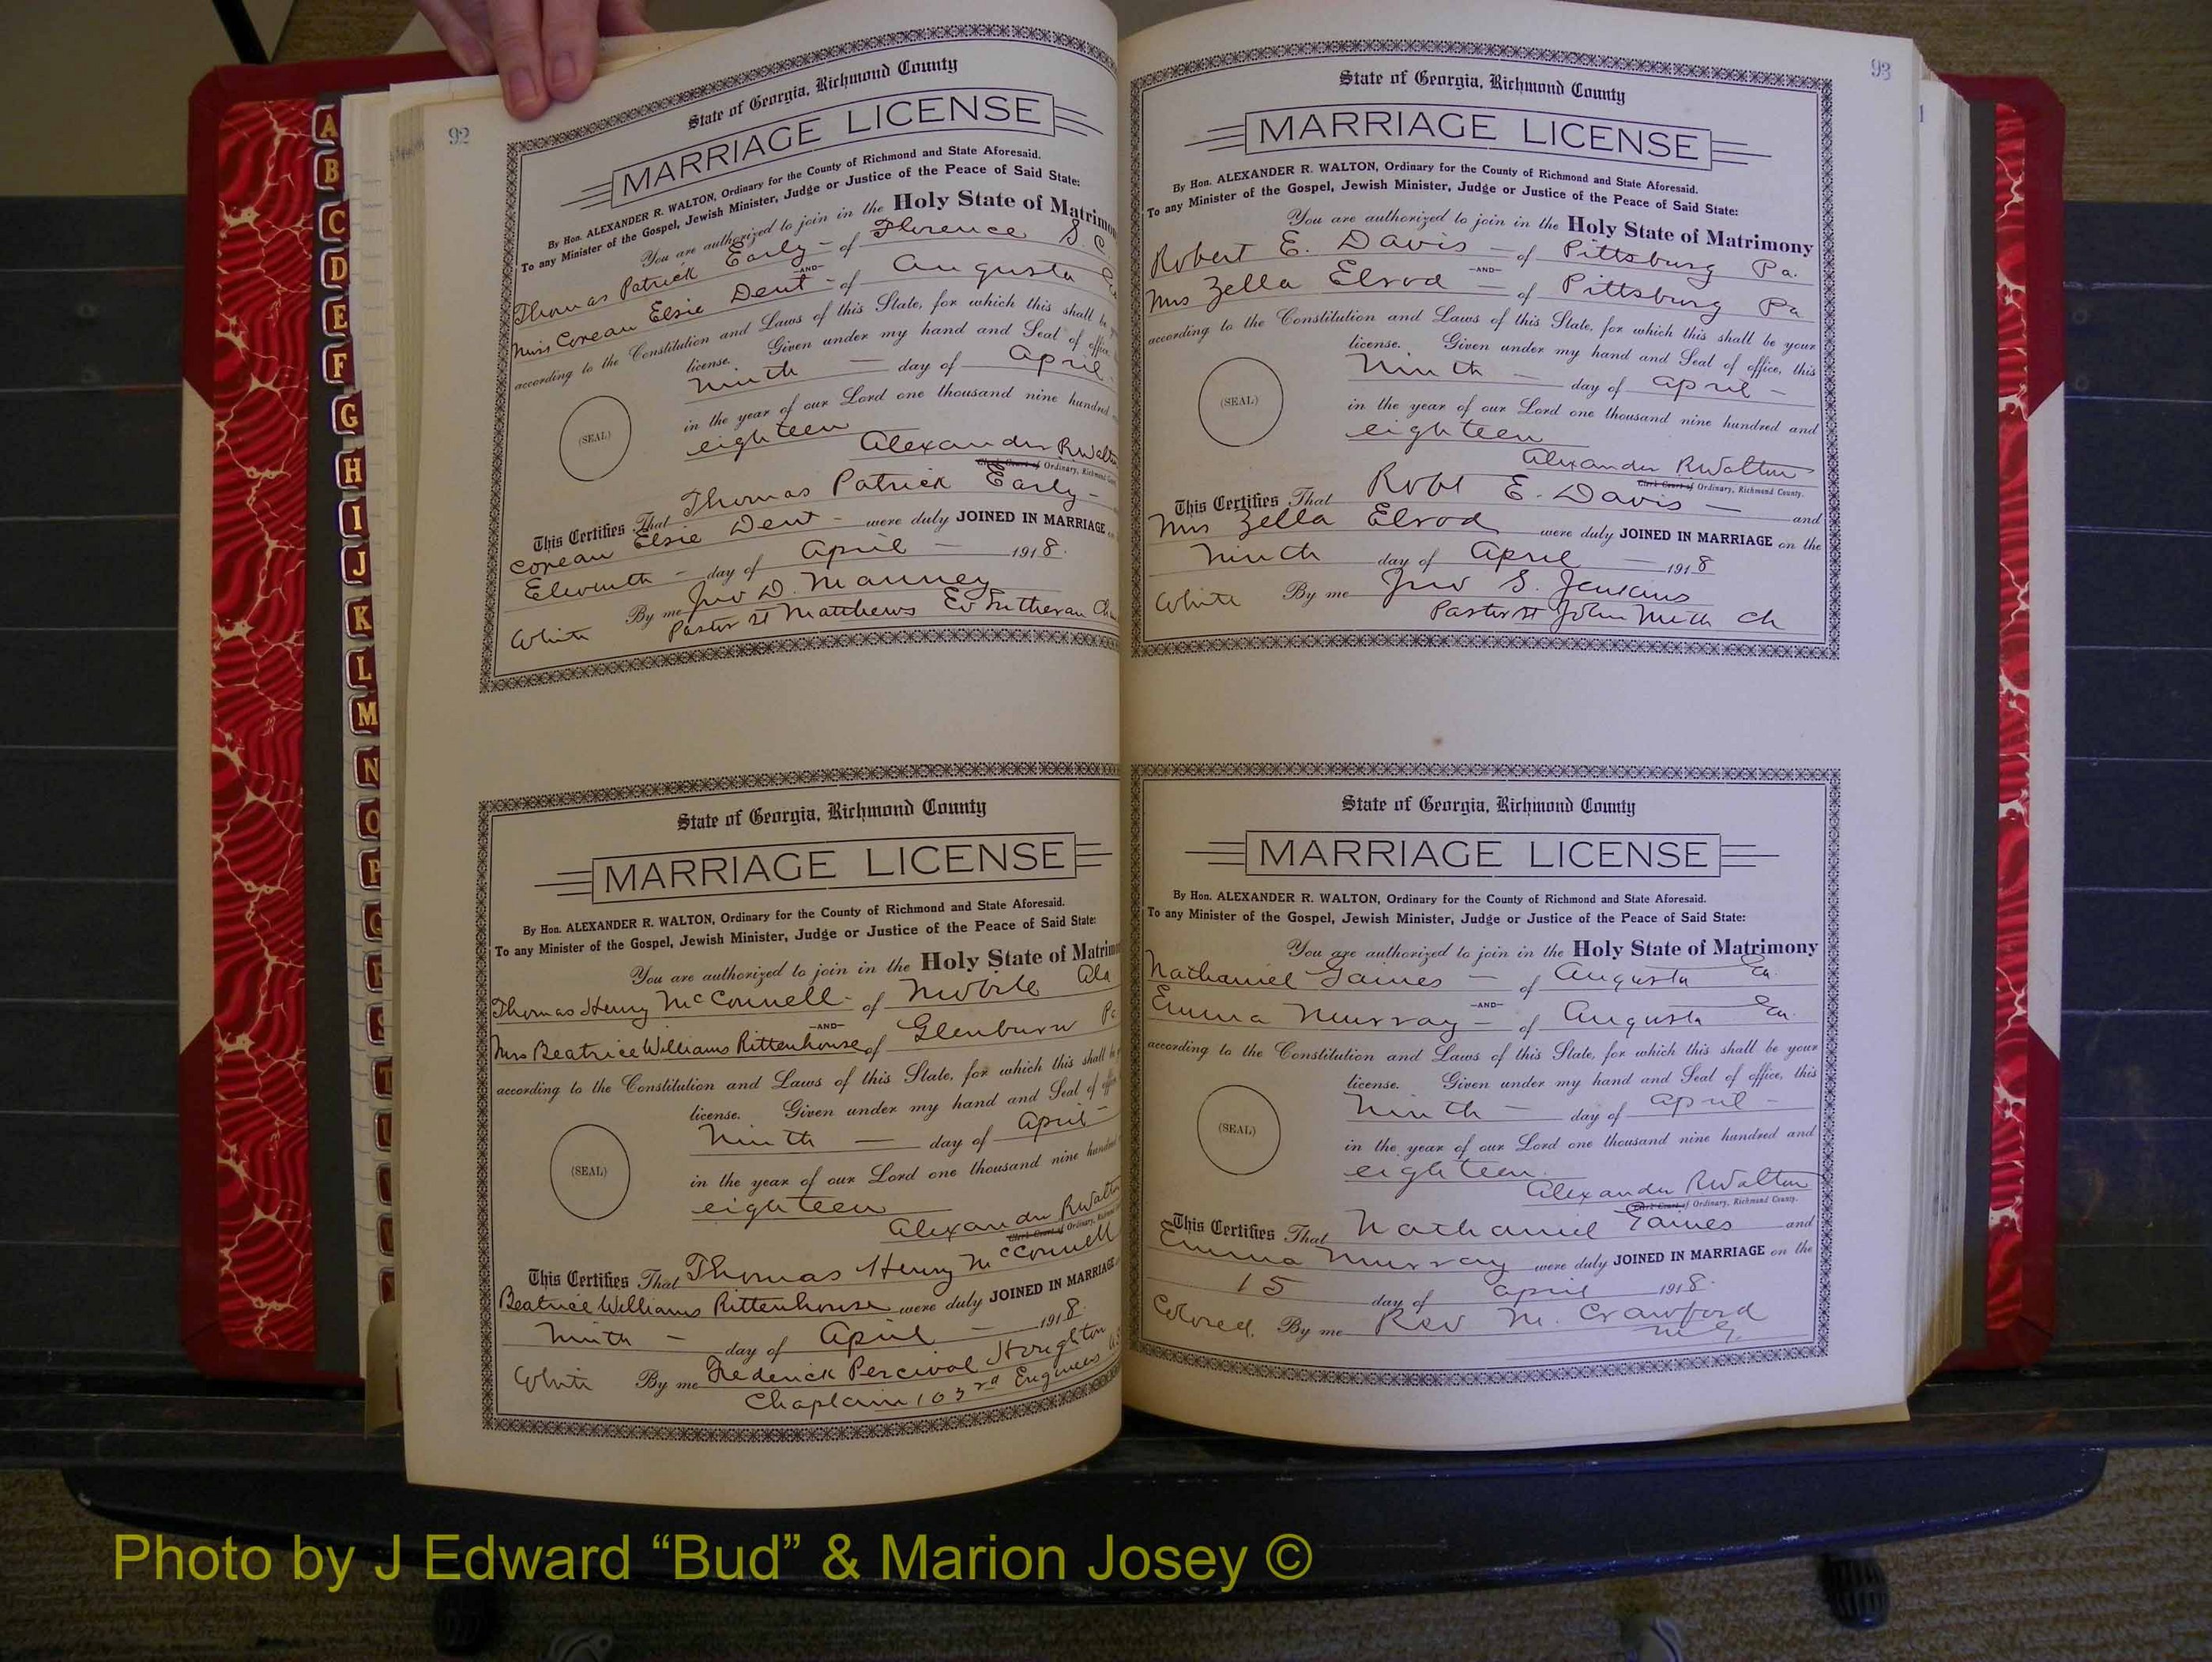 A
B
C
D
E
F
G
H
I
J
K
L
M
N
O
P
Q
R
S
T
U
V
92
State of Georgia, Richmond County
MARRIAGE LICENSE
By Hon. ALEXANDER R. WALTON, Ordinary for the County of Richmond and State Aforesaid.
To any Minister of the Gospel, Jewish Minister, Judge or Justice of the Peace of Said State:
You are authorized to join in the Holy State of Matrimo
Thomas Patrick Early - of Florence S. C.
-AND-
Miss Corean Elsie Dent - of Augusta
according to the Constitution and Laws of this State, for which this shall be
license. Given under my hand and Seal of office,
Ninth — day of April
(SEAL)
in the year of our Lord one thousand nine hundred
eighteen
Alexander R Walton
Clerk Court of Ordinary, Richmond
This Certifies That Thomas Patrick Early -
Corean Elsie Dent - were duly JOINED IN MARRIAGE
Eleventh - day of April — 1918.
By me Jno D. Mauney
White Pastor St Matthews Ev Lutheran
State of Georgia, Richmond County
MARRIAGE LICENSE
By Hon. ALEXANDER R. WALTON, Ordinary for the County of Richmond and State Aforesaid.
To any Minister of the Gospel, Jewish Minister, Judge or Justice of the Peace of Said State:
You are authorized to join in the Holy State of Matrim
Thomas Henry McConnell - of Mobile Ala
-AND-
Mrs Beatrice Williams Rittenhouse of Glenburn Pa
according to the Constitution and Laws of this State, for which this shall be
license. Given under my hand and Seal of
Ninth — day of April -
(SEAL)
in the year of our Lord one thousand nine hundred
eighteen
Alexander R Walton
Clerk Court of Ordinary,
This Certifies That Thomas Henry McConnell
Beatrice Williams Rittenhouse were duly JOINED IN MARRIAGE
Ninth - day of April - 1918.
White By me Frederick Percival Houghton
Chaplain 103rd Engineers
93
State of Georgia, Richmond County
MARRIAGE LICENSE
By Hon. ALEXANDER R. WALTON, Ordinary for the County of Richmond and State Aforesaid.
To any Minister of the Gospel, Jewish Minister, Judge or Justice of the Peace of Said State:
You are authorized to join in the Holy State of Matrimony
Robert E. Davis — of Pittsburg Pa.
-AND-
Mrs Zella Elrod — of Pittsburg Pa
according to the Constitution and Laws of this State, for which this shall be your
license. Given under my hand and Seal of office, this
Ninth — day of April -
(SEAL)
in the year of our Lord one thousand nine hundred and
eighteen
Alexander R Walton
Clerk Court of Ordinary, Richmond County.
This Certifies That Robt E. Davis — and
Mrs Zella Elrod were duly JOINED IN MARRIAGE on the
Ninth day of April — 1918
White By me Jno S. Jenkins
Pastor St John Meth Ch
State of Georgia, Richmond County
MARRIAGE LICENSE
By Hon. ALEXANDER R. WALTON, Ordinary for the County of Richmond and State Aforesaid.
To any Minister of the Gospel, Jewish Minister, Judge or Justice of the Peace of Said State:
You are authorized to join in the Holy State of Matrimony
Nathaniel Gaines — of Augusta Ga.
-AND-
Emma Murray - of Augusta Ga.
according to the Constitution and Laws of this State, for which this shall be your
license. Given under my hand and Seal of office, this
Ninth - day of April -
(SEAL)
in the year of our Lord one thousand nine hundred and
eighteen.
Alexander R Walton
Clerk Court of Ordinary, Richmond County.
This Certifies That Nathaniel Gaines and
Emma Murray were duly JOINED IN MARRIAGE on the
15 day of April 1918.
Colored. By me Rev M. Crawford
M.G.
Photo by J Edward “Bud” & Marion Josey ©